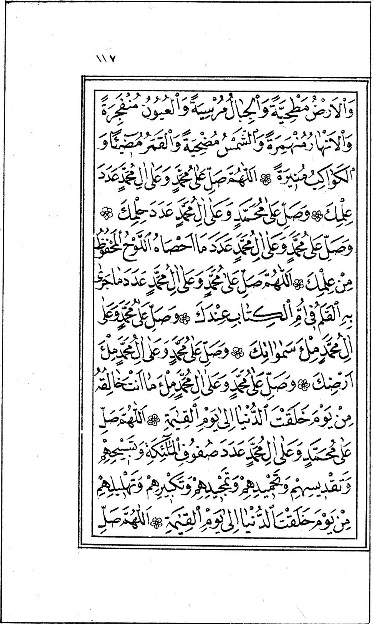 ١١٧
وَالْاَرْضُ مَطْحِيَّةً وَالْجِبَالُ مُرْسِيَةً وَالْعُيُونُ مُنْفَجِرَةً
وَالْاَنْهَارُ مُنْهَمِرَةً وَالشَّمْسُ مُضْحِيَةً وَالْقَمَرُ مُضِيئًا وَ
الْكَوَاكِبُ مُنِيرَةً ۞ اَللّٰهُمَّ صَلِّ عَلٰى مُحَمَّدٍ وَعَلٰى اٰلِ مُحَمَّدٍ عَدَدَ
عِلْمِكَ ۞ وَصَلِّ عَلٰى مُحَمَّدٍ وَعَلٰى اٰلِ مُحَمَّدٍ عَدَدَ حِلْمِكَ ۞
وَصَلِّ عَلٰى مُحَمَّدٍ وَعَلٰى اٰلِ مُحَمَّدٍ عَدَدَ مَا اَحْصَاهُ اللَّوْحُ الْمَحْفُوظُ
مِنْ عِلْمِكَ ۞ اَللّٰهُمَّ صَلِّ عَلٰى مُحَمَّدٍ وَعَلٰى اٰلِ مُحَمَّدٍ عَدَدَ مَا جَرٰى
بِهِ الْقَلَمُ فِى اُمِّ الْكِتَابِ عِنْدَكَ ۞ وَصَلِّ عَلٰى مُحَمَّدٍ وَعَلٰى
اٰلِ مُحَمَّدٍ مِلْءَ سَمٰوَاتِكَ ۞ وَصَلِّ عَلٰى مُحَمَّدٍ وَعَلٰى اٰلِ مُحَمَّدٍ مِلْءَ
اَرْضِكَ ۞ وَصَلِّ عَلٰى مُحَمَّدٍ وَعَلٰى اٰلِ مُحَمَّدٍ مِلْءَ مَا اَنْتَ خَالِقُهُ
مِنْ يَوْمِ خَلَقْتَ الدُّنْيَا اِلٰى يَوْمِ الْقِيٰمَةِ ۞ اَللّٰهُمَّ صَلِّ
عَلٰى مُحَمَّدٍ وَعَلٰى اٰلِ مُحَمَّدٍ عَدَدَ صُفُوفِ الْمَلٰئِكَةِ وَتَسْبِيحِهِمْ
وَتَقْدِيسِهِمْ وَتَحْمِيدِهِمْ وَتَمْجِيدِهِمْ وَتَكْبِيرِهِمْ وَتَهْلِيلِهِمْ
مِنْ يَوْمِ خَلَقْتَ الدُّنْيَا اِلٰى يَوْمِ الْقِيٰمَةِ ۞ اَللّٰهُمَّ صَلِّ